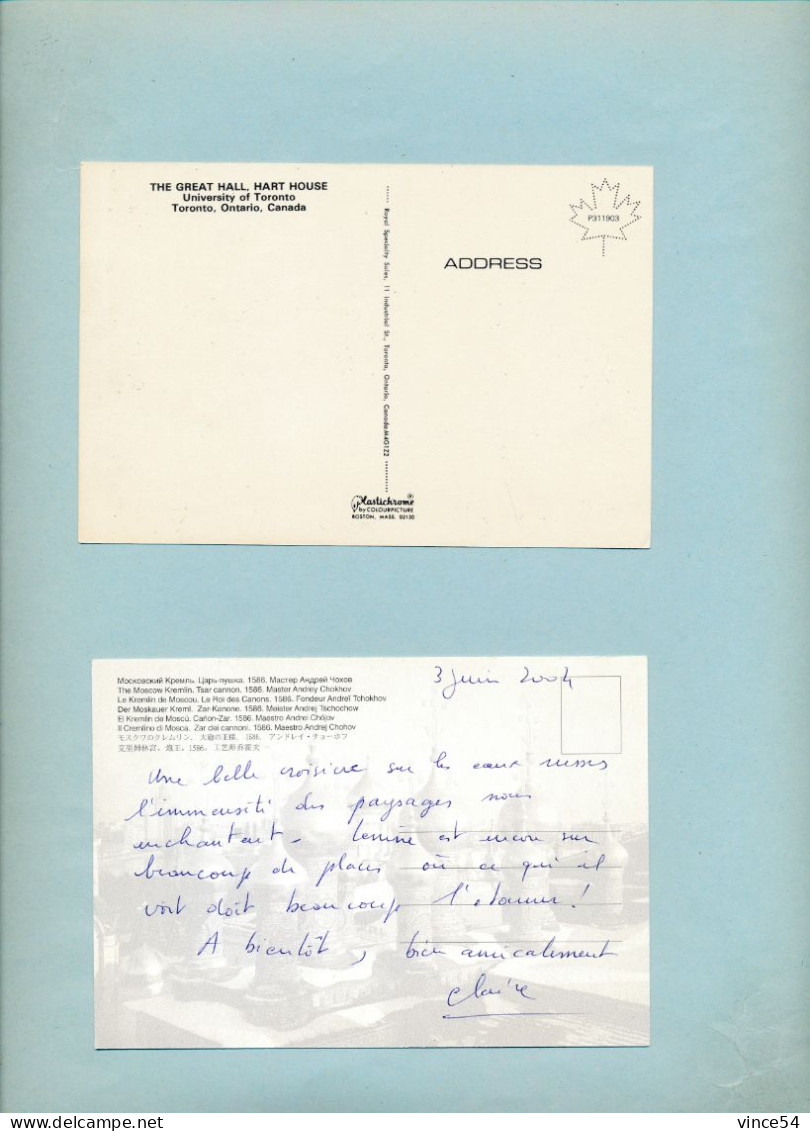 THE GREAT HALL, HART HOUSE
University of Toronto
Toronto, Ontario, Canada
Royal Specialty Sales, 11 Industrial St., Toronto, Ontario, Canada M4G1Z2
P311903
ADDRESS
Plastichrome ®
by COLOURPICTURE
BOSTON, MASS. 02130
Московский Кремль. Царь-пушка. 1586. Мастер Андрей Чохов
The Moscow Kremlin. Tsar cannon. 1586. Master Andrey Chokhov
Le Kremlin de Moscou. Le Roi des Canons. 1586. Fondeur Andreï Tchokhov
Der Moskauer Kreml. Zar-Kanone. 1586. Meister Andrej Tschochow
El Kremlin de Moscú. Cañon-Zar. 1586. Maestro Andrei Chójov
Il Cremlino di Mosca. Zar dei cannoni. 1586. Maestro Andrej Chohov
モスクワのクレムリン. 大砲の王様. 1586. アンドレイ・チョーホフ
克里姆林宫. 炮王. 1586. 工艺师乔霍夫
3 juin 2004
Une belle croisière sur les eaux russes
l'immensité des paysages nous
enchantent - Lenine est encore sur
beaucoup de places où ce qui il
voit doit beaucoup l'étonner !
A bientôt, bien amicalement
Claire
vince54